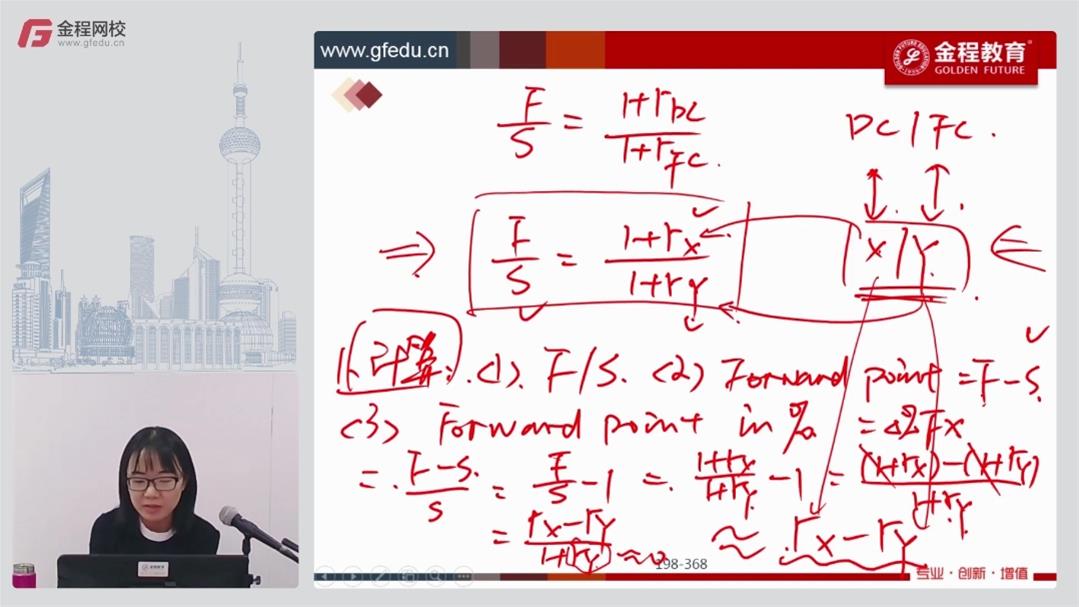 金程网校
www.gfedu.cn
www.gfedu.cn
金程教育
GOLDEN FUTURE
F/S = (1+r_DC)/(1+r_FC).
DC/FC.
⇒ F/S = (1+r_X)/(1+r_Y)
X/Y.
1. 计算: <1>. F/S. <2> Forward point = F-S.
<3> Forward point in % = Δ%FX
= (F-S)/S = F/S - 1 = (1+r_X)/(1+r_Y) - 1 = ((1+r_X)-(1+r_Y))/(1+r_Y)
= (r_X-r_Y)/(1+r_Y) ≈0 ≈ r_X-r_Y
198-368
专业·创新·增值
金程教育